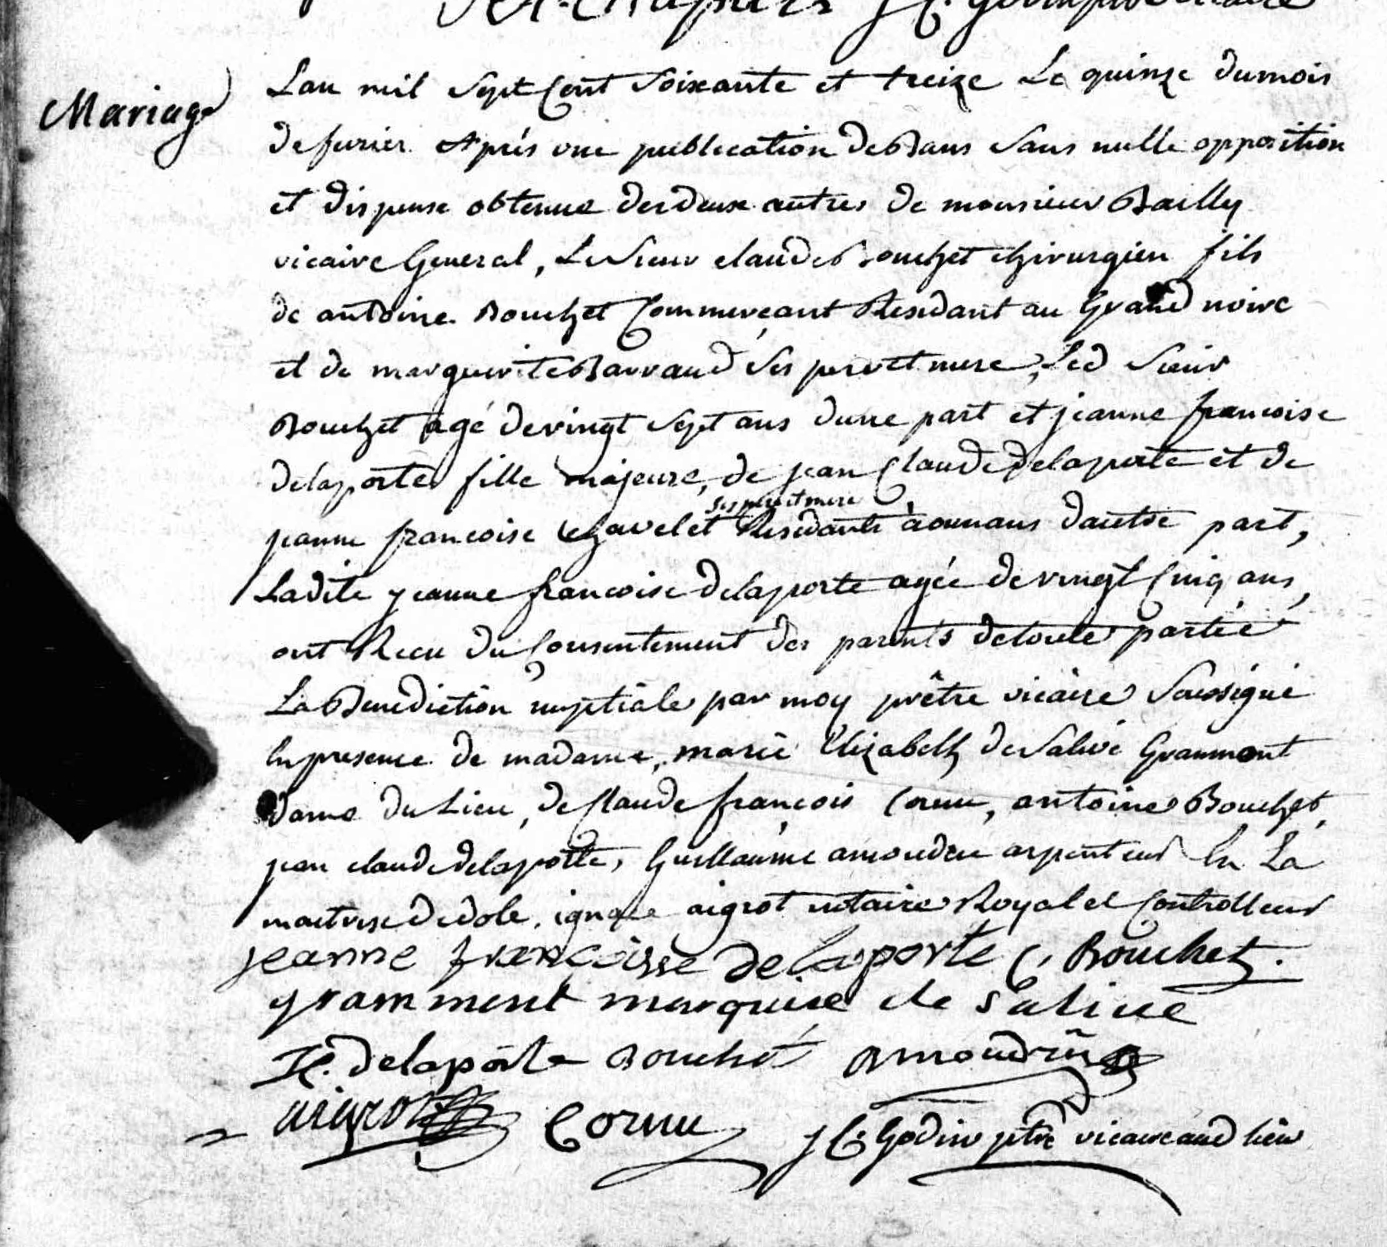 Mariage
Lan mil sept Cent Soixante et treize Le quinze dumois
de fevrier Après une publication deBans Sans nulle opposition
et dispense obtenue des deux autres de monsieur Bailly
vicaire General, Le Sieur claude Bouchet chirurgien fils
de antoine Bouchet Commerçant Residant au Grand noire
et de marguerite Barraud Ses pere et mere, Led Sieur
Bouchet agé de vingt Sept ans dune part et jeanne francoise
delaporte fille majeure, de jean Claude delaporte et de
ses pere et mere
jeanne francoise Chavelet Residants aounans dautre part,
Ladite jeanne francoise delaporte agée de vingt Cinq ans,
ont Recu du Consentement des parents de toute partie
La Benediction nuptiale par moy prêtre vicaire Soussigné
En presence de madame, marie Elizabeth de Salive Grammont
Dame du Lieu, de Claude françois Cornu, antoine Bouchet,
jean claude delaporte, Guillaume amoudru arpenteur En La
maitrise de dole, ignace aigrot notaire Royal et Controlleur
jeanne françoisse de laporte C, Bouchet.
grammont marquise de Salive
JC. delaporte Bouchet amoudru
aigrot Cornu J C Godin ptre vicaire aud lieu